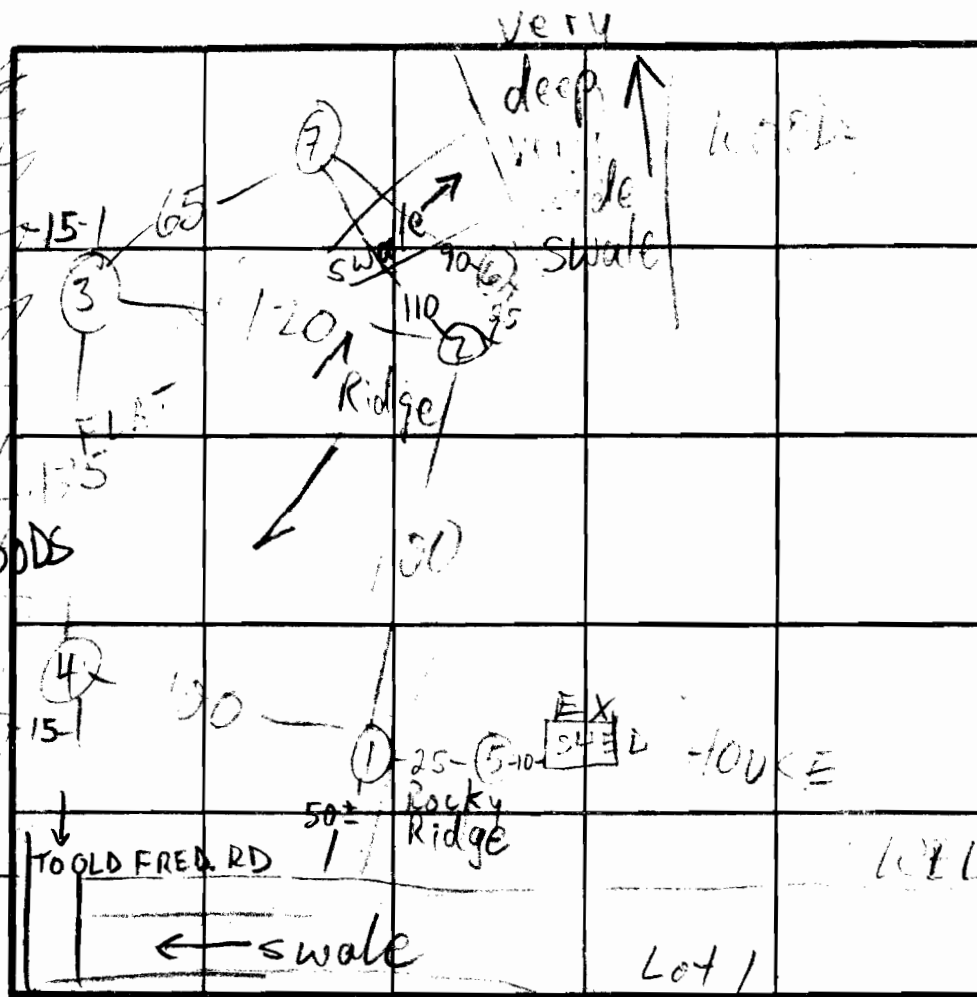 very
deep
swale
7
65
-15-
3
swale
90
6
110
2
120
Ridge
FLAT
4
-15-
1
-25-
5
-10-
EX
SHED
HOUSE
50±
Rocky
Ridge
TO OLD FRED. RD
← swale
Lot 1